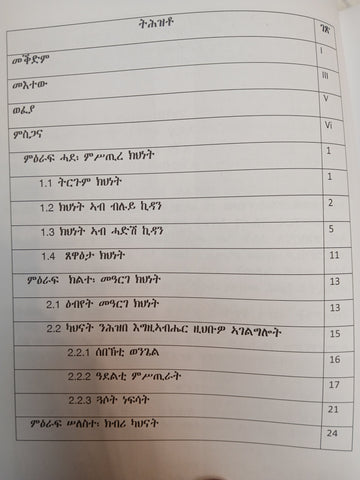 ትሕዝቶ ገጽ
መቕድም I
መእተው III
ወፈያ V
ምስጋና Vi
ምዕራፍ ሓደ፡ ምሥጢረ ክህነት 1
1.1 ትርጉም ክህነት 1
1.2 ክህነት ኣብ ብሉይ ኪዳን 2
1.3 ክህነት ኣብ ሓድሽ ኪዳን 5
1.4 ጸዋዕታ ክህነት 11
ምዕራፍ ክልተ፡ መዓርገ ክህነት 13
2.1 ዕብየት መዓርገ ክህነት 13
2.2 ካህናት ንሕዝበ እግዚኣብሔር ዚህብዎ ኣገልግሎት 15
2.2.1 ሰበኽቲ ወንጌል 16
2.2.2 ዓደልቲ ምሥጢራት 17
2.2.3 ጓሶት ነፍሳት 21
ምዕራፍ ሠለስተ፡ ክብሪ ካህናት 24